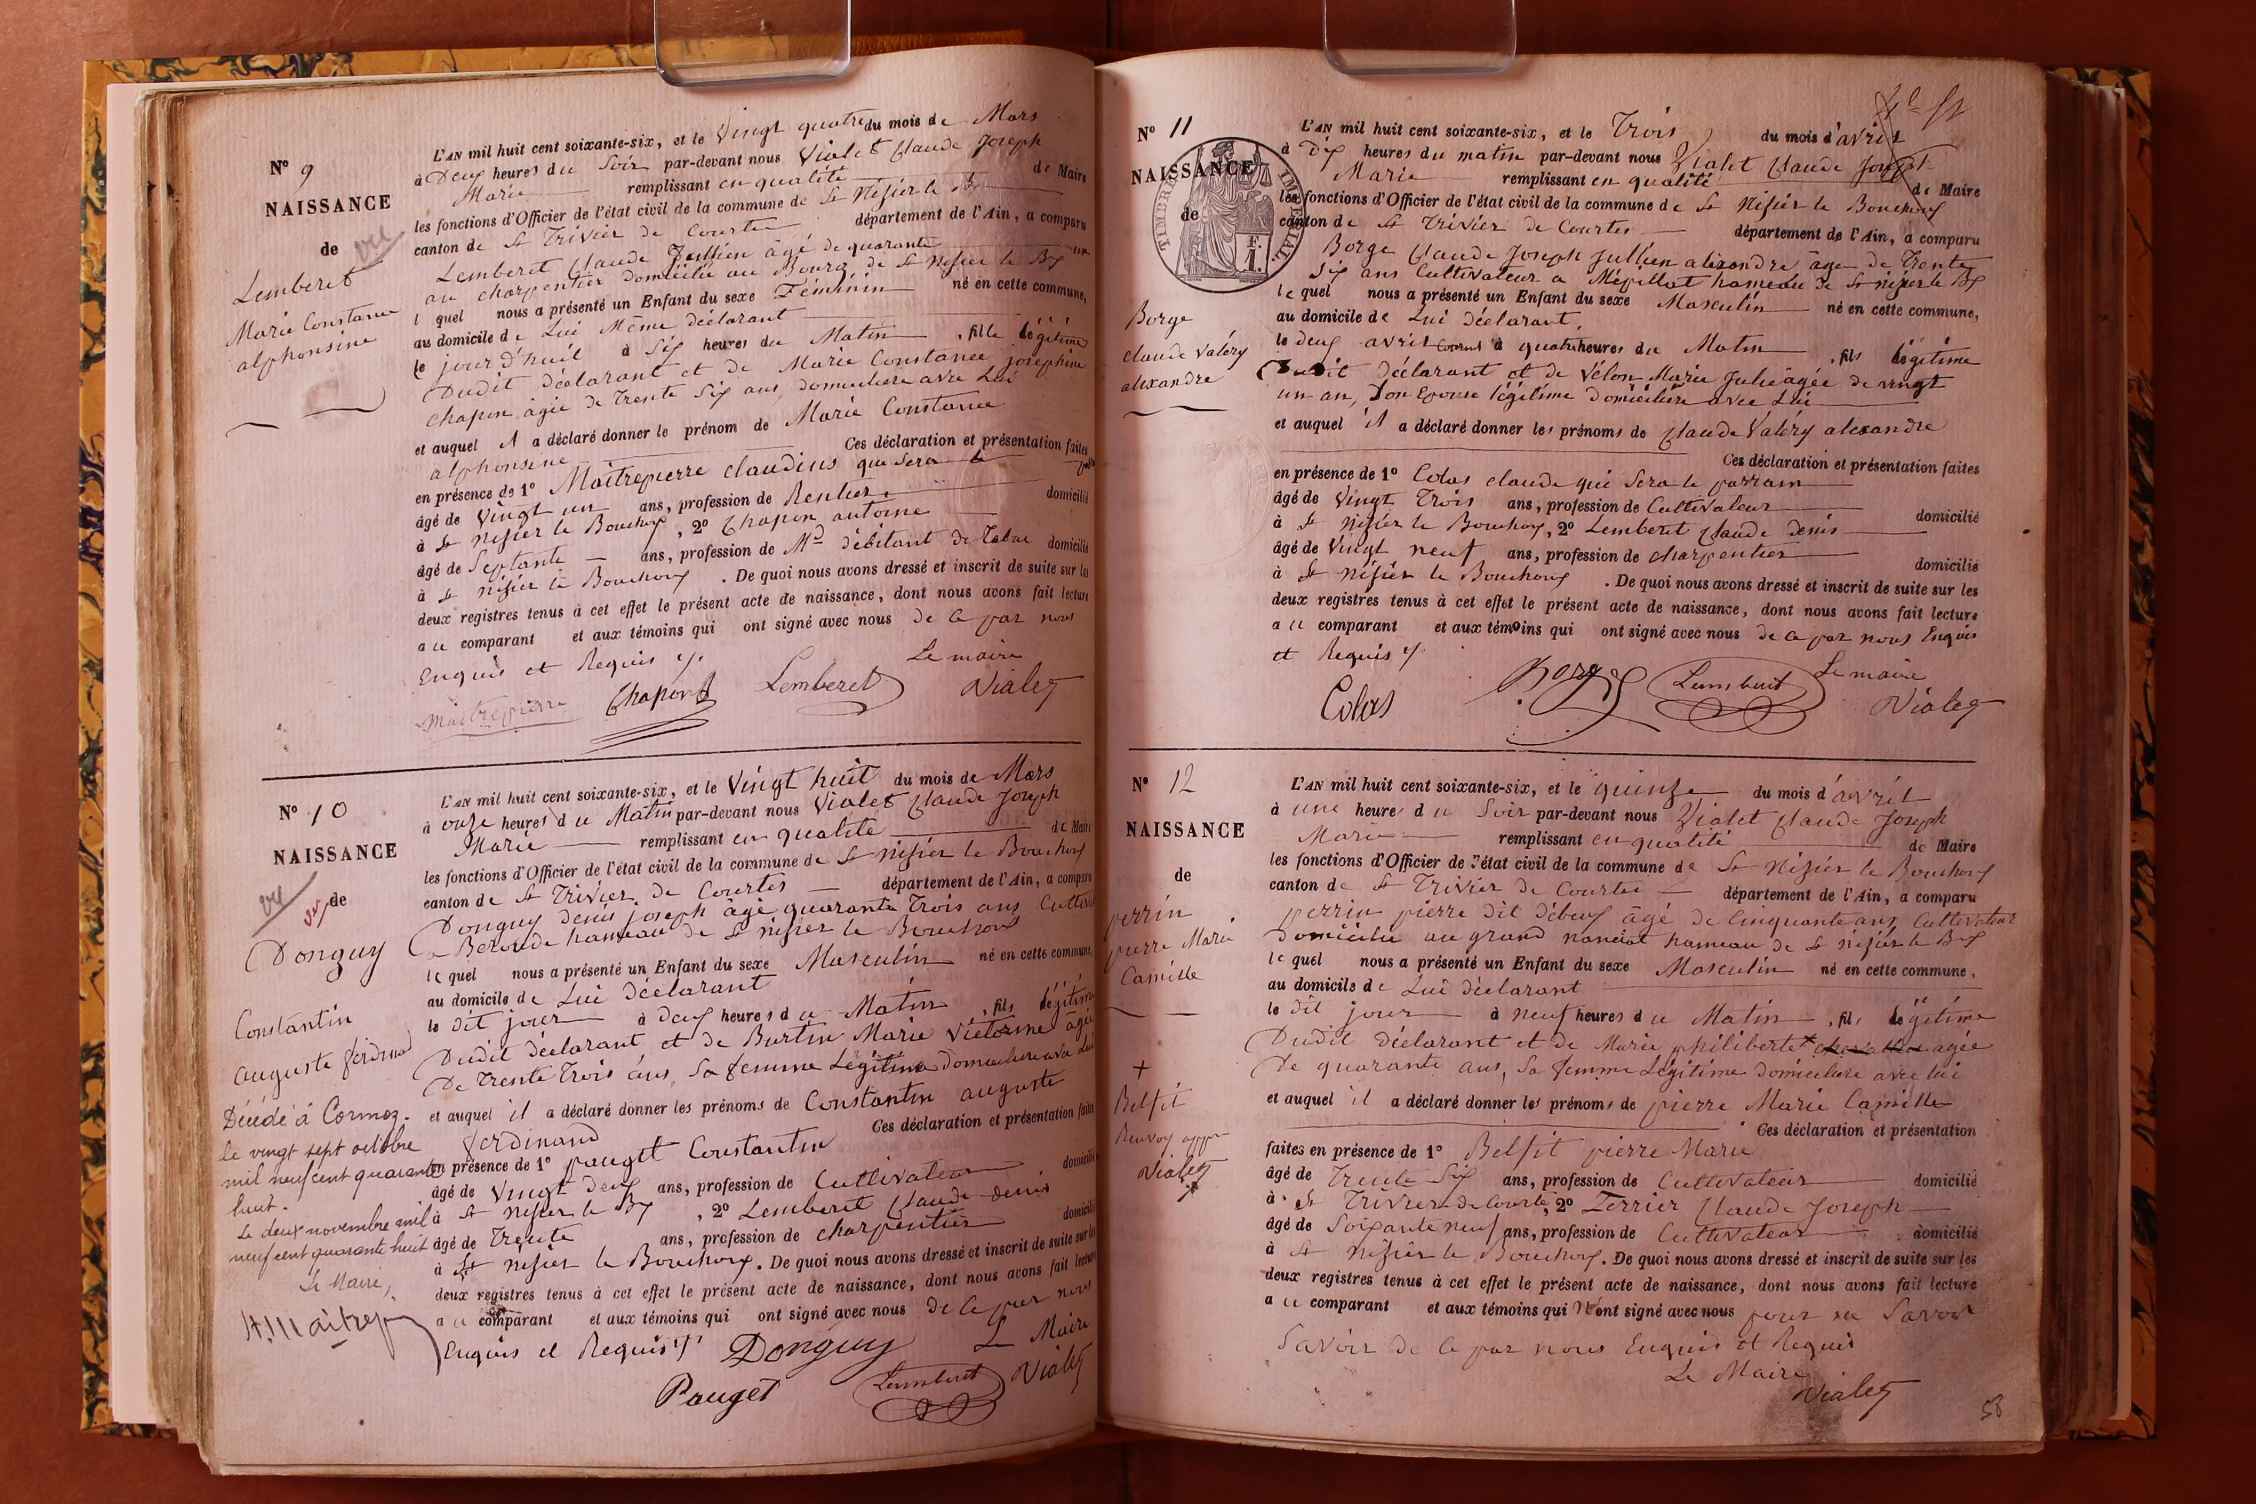 N° 9
NAISSANCE
de
vu
Lemberet
Marie Constance
alphonsine
L'AN mil huit cent soixante-six, et le Vingt quatre du mois de Mars
à Deux heures du Soir par-devant nous Vialet Claude Joseph
Marie remplissant en qualité de Maire
les fonctions d'Officier de l'état civil de la commune de St Nisier le Bx
canton de St Trivier de Courtes département de l'Ain, a comparu
Lemberet Claude Jullien âgé de quarante un
an charpentier domicilié au Bourg de St Nisier le Bx
l quel nous a présenté un Enfant du sexe Féminin né en cette commune,
au domicile de Lui Même déclarant
le jour d'huit à Six heures du Matin, fille légitime
Dudit déclarant et de Marie Constance Joséphine
Chapon, âgée de Trente Six ans, domiciliée avec Lui
et auquel il a déclaré donner le prénom de Marie Constance
alphonsine Ces déclaration et présentation faites
en présence de 1° Maitrepierre claudius qui Sera le
âgé de Vingt un ans, profession de Rentier domicilié
à St Nisier le Bouchoux, 2° Chapon antoine
âgé de Septante ans, profession de Md débitant de Tabac domicilié
à St Nisier le Bouchoux. De quoi nous avons dressé et inscrit de suite sur les
deux registres tenus à cet effet le présent acte de naissance, dont nous avons fait lecture
au comparant et aux témoins qui ont signé avec nous de ce par nous
Enquis et Requis
Le maire
Maitrepierre Chapon Lemberet Vialet
N° 10
NAISSANCE
de
vu
Donguy
Constantin
auguste ferdinand
Décédé à Cormoz.
le vingt sept octobre
mil neuf cent quarante
huit.
Le deux novembre mil
neuf cent quarante huit
Le Maire,
L'AN mil huit cent soixante-six, et le Vingt huit du mois de Mars
à onze heures du Matin par-devant nous Vialet Claude Joseph
Marie remplissant en qualité de Maire
les fonctions d'Officier de l'état civil de la commune de St Nisier le Bouchoux
canton de St Trivier de Courtes département de l'Ain, a comparu
Donguy denis joseph âgé quarante Trois ans Cultivat
a Beroude hameau de St nisier le Bouchoux
le quel nous a présenté un Enfant du sexe Masculin né en cette commune,
au domicile de Lui déclarant
le dit jour à Deux heures du Matin, fils légitime
Dudit déclarant et de Burtin Marie Victorine âgée
De Trente Trois ans, Sa femme Légitime domiciliée avec Lui
et auquel il a déclaré donner les prénoms de Constantin auguste
ferdinand Ces déclaration et présentation faites
en présence de 1° pauget Constantin
âgé de Vingt Deux ans, profession de Cultivateur domicilié
à St Nisier le Bx, 2° Lemberet Claude denis
âgé de Trente ans, profession de charpentier domicilié
à St Nisier le Bouchoux. De quoi nous avons dressé et inscrit de suite sur les
deux registres tenus à cet effet le présent acte de naissance, dont nous avons fait lecture
au comparant et aux témoins qui ont signé avec nous de ce par nous
Enquis et Requis Donguy Le Maire
Pauget Lemberet Vialet
N° 11
NAISSANCE
de
TIMBRE IMPERIAL
F.
1.
Borge
claude Valéry
alixandre
L'AN mil huit cent soixante-six, et le Trois du mois d'avril
à Dix heures du matin par-devant nous Vialet Claude Joseph
Marie remplissant en qualité de Maire
les fonctions d'Officier de l'état civil de la commune de St Nisier le Bouchoux
canton de St Trivier de Courtes département de l'Ain, a comparu
Borge Claude Joseph Jullien alixandre âgé de Trente
Six ans Cultivateur a Mépillat hameau de St nisier le Bx
le quel nous a présenté un Enfant du sexe Masculin né en cette commune,
au domicile de Lui déclarant,
le deux avril courant à quatre heures du Matin, fils légitime
Dudit déclarant et de Vélon Marie Julie âgée de vingt
un an, Son Epouse légitime domiciliée avec Lui
et auquel il a déclaré donner les prénoms de Claude Valéry alexandre
Ces déclaration et présentation faites
en présence de 1° Colas claude qui Sera le parrain
âgé de Vingt Trois ans, profession de Cultivateur domicilié
à St Nisier le Bouchoux, 2° Lemberet Claude denis
âgé de Vingt neuf ans, profession de charpentier domicilié
à St Nisier le Bouchoux. De quoi nous avons dressé et inscrit de suite sur les
deux registres tenus à cet effet le présent acte de naissance, dont nous avons fait lecture
au comparant et aux témoins qui ont signé avec nous de ce par nous Enquis
et Requis
Colas Borge Lemberet Le maire
Vialet
N° 12
NAISSANCE
de
perrin
pierre Marie
Camille
+
Belfit
Renvoy appr
Vialet
L'AN mil huit cent soixante-six, et le quinze du mois d'avril
à une heure du Soir par-devant nous Vialet Claude Joseph
Marie remplissant en qualité de Maire
les fonctions d'Officier de l'état civil de la commune de St Nisier le Bouchoux
canton de St Trivier de Courtes département de l'Ain, a comparu
perrin pierre dit débeuf âgé de Cinquante ans Cultivateur
Domicilié au grand nanciat hameau de St nisier le Bx
le quel nous a présenté un Enfant du sexe Masculin né en cette commune,
au domicile de Lui déclarant
le dit jour à neuf heures du Matin, fils légitime
Dudit déclarant et de Marie philiberte + âgée
De quarante ans, Sa femme Légitime domiciliée avec lui
et auquel il a déclaré donner les prénoms de pierre Marie Camille
Ces déclaration et présentation
faites en présence de 1° Belfit pierre Marie
âgé de Trente Six ans, profession de Cultivateur domicilié
à St Trivier de Courtes, 2° Terrier Claude Joseph
âgé de Soixante neuf ans, profession de Cultivateur domicilié
à St Nisier le Bouchoux. De quoi nous avons dressé et inscrit de suite sur les
deux registres tenus à cet effet le présent acte de naissance, dont nous avons fait lecture
au comparant et aux témoins qui n'ont signé avec nous pour ne Savoir
Savoir de ce par nous Enquis et Requis
Le Maire
Vialet
58